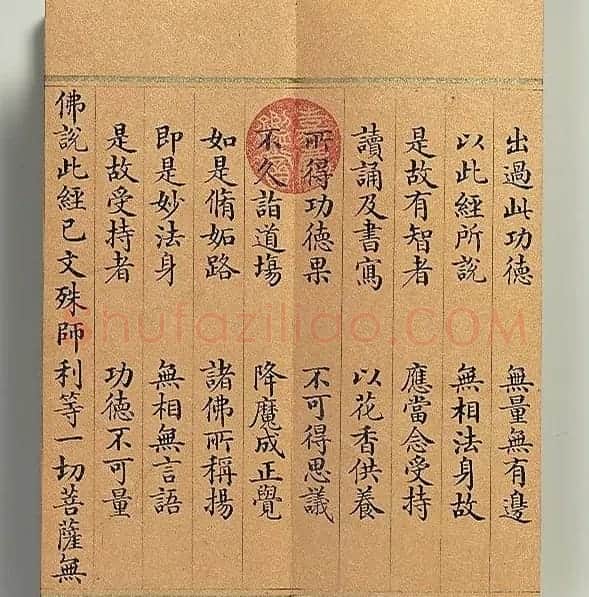 出過此功德 無量無有邊
以此經所說 無相法身故
是故有智者 應當念受持
讀誦及書寫 以花香供養
所得功德果 不可得思議
不久詣道場 降魔成正覺
如是脩妬路 諸佛所稱揚
即是妙法身 無相無言語
是故受持者 功德不可量
佛說此經已文殊師利等一切菩薩無
shufaziliao.COM